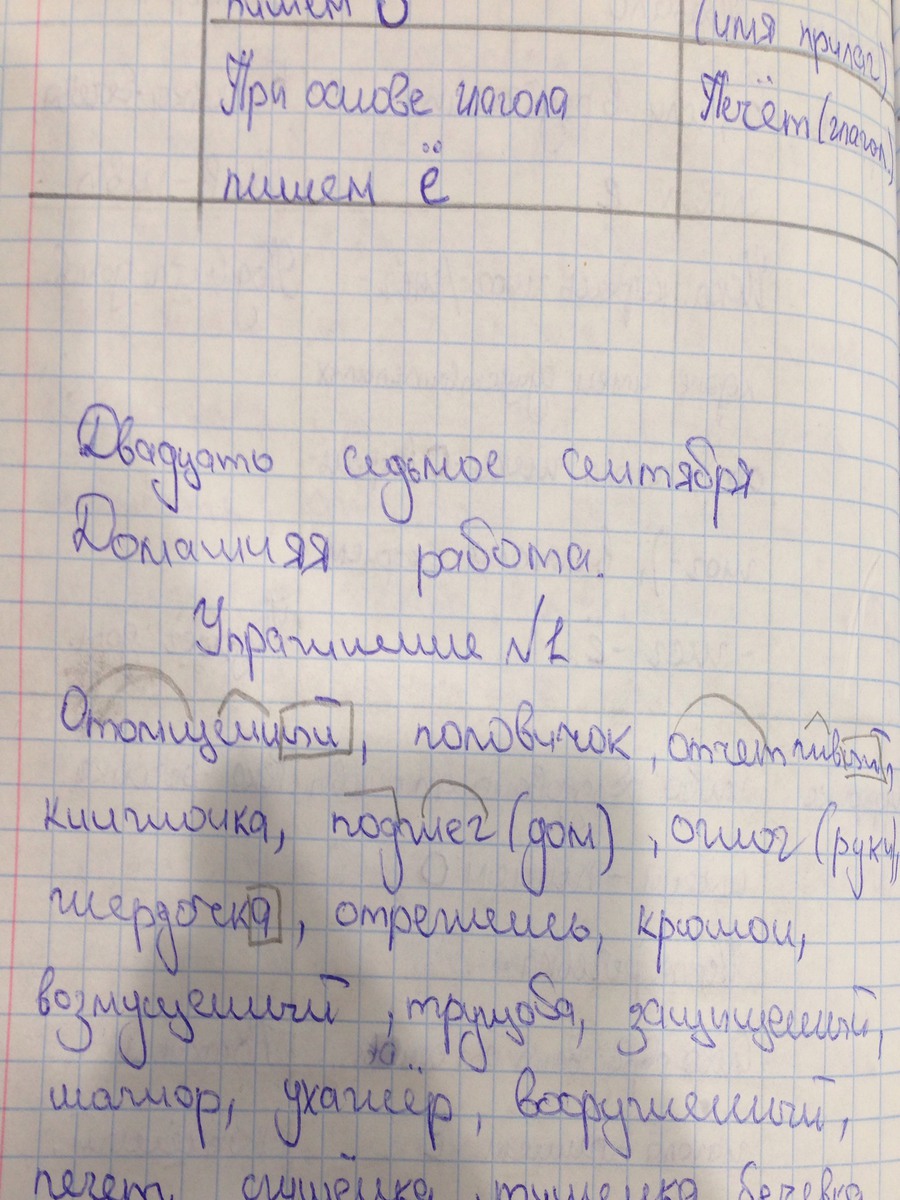 пишем О
(имя прилаг)
При основе глагола
Печёт (глагол.)
пишем ё
Двадцать седьмое сентября
Домашняя работа.
Упражнение №1
Отомщенный, половичок, отчетливый,
книжонка, поджег (дом), ожог (руки),
жердочка, отрешись, крюшон,
возмущенный, трущоба, защищенный,
мажор, ухажёр, вооруженный,
печет, сгущёнка, тушенка, бечевка